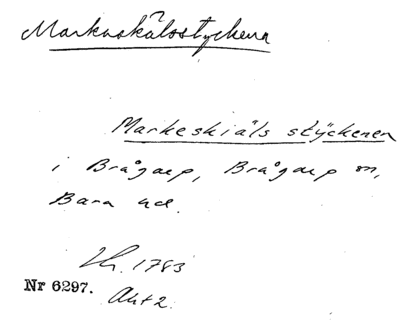 Markaskälsstyckena
Markeskiäls stÿckenen
i Brågarp, Brågarp sn,
Bara hd.
Lh. 1783
Nr 6297. Akt 2.